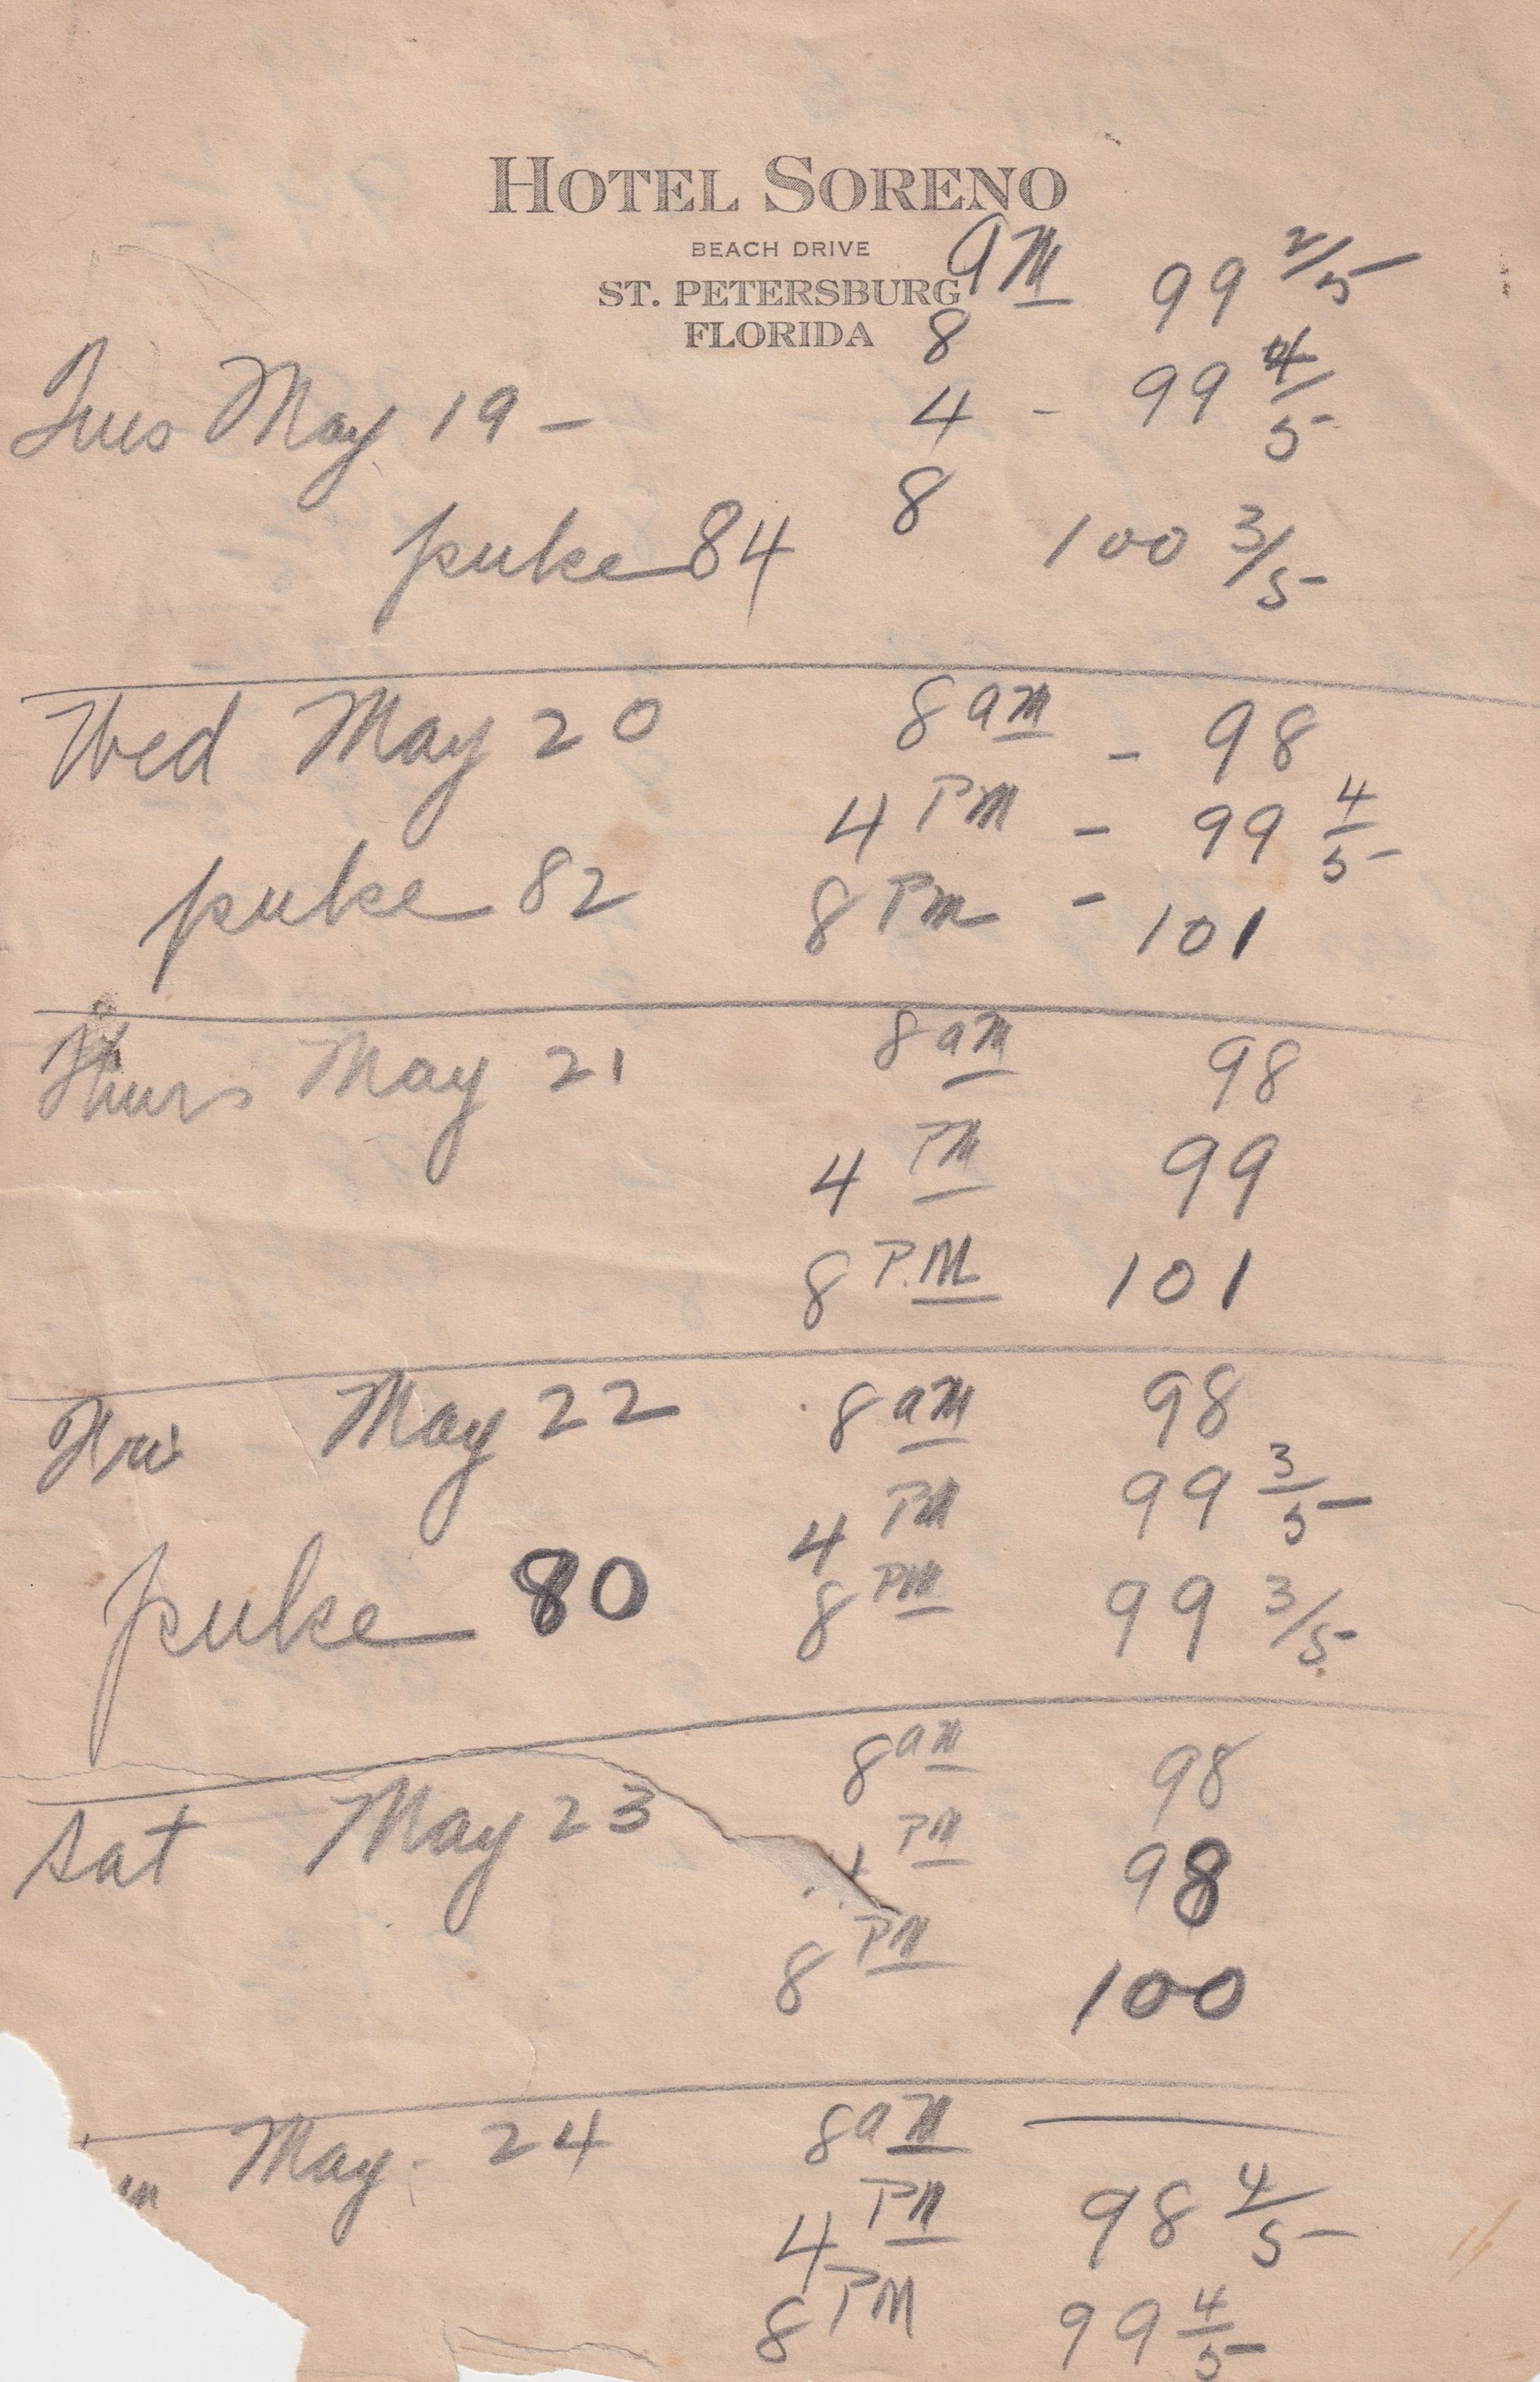 HOTEL SORENO
BEACH DRIVE
ST. PETERSBURG
FLORIDA
8 AM 99 2/5
Tues May 19 - 4 - 99 4/5
pulse 84 8 100 3/5
Wed May 20 8 am - 98
4 PM - 99 4/5
pulse 82 8 PM - 101
Thurs May 21 8 am 98
4 PM 99
8 P.M 101
Fri May 22 8 am 98
4 PM 99 3/5
pulse 80 8 PM 99 3/5
8 am 98
Sat May 23 PM 98
8 PM 100
un May. 24 8 am —
4 PM 98 4/5
8 PM 99 4/5